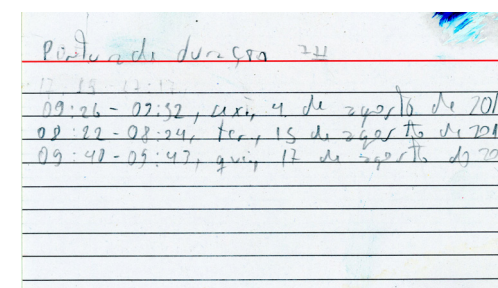 Pintura de duração 24
09:26 - 09:32, sex., 4 de agosto de 201
08:22 - 08:24, ter., 15 de agosto de 201
09:40 - 09:47, qui., 17 de agosto de 20